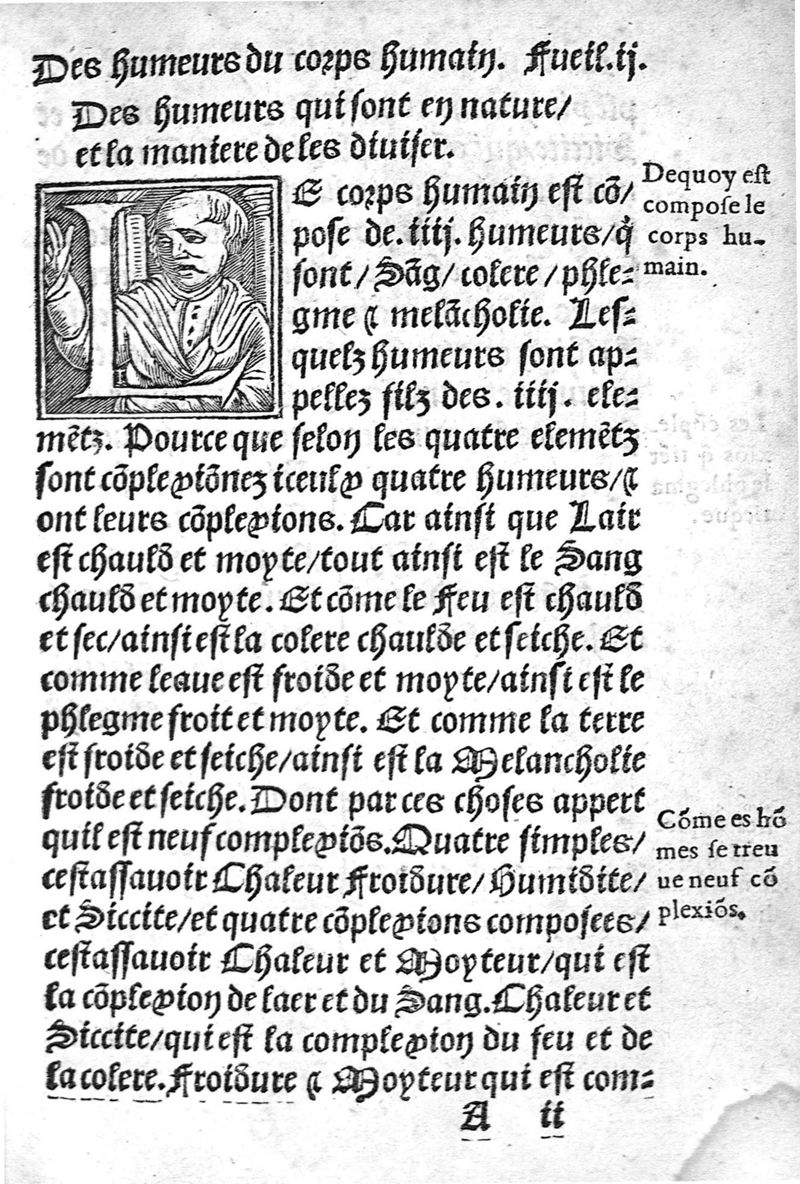 Des humeurs du corps humain. Fueil.ij.
Des humeurs qui sont en nature/
et la maniere de les diuiser.
LE corps humain est cõ/
pose de.iiij.humeurs/q̃
sont/Sãg/colere/phle⸗
gme ⁊ melãcholie. Les⸗
quelz humeurs sont ap⸗
pellez filz des.iiij.ele⸗
mẽtz. Pource que selon les quatre elemẽtz
sont cõplexiõnez iceulx quatre humeurs/⁊
ont leurs cõplexions. Car ainsi que Lair
est chauld et moyte/tout ainsi est le Sang
chauld et moyte. Et cõme le Feu est chauld
et sec/ainsi est la colere chaulde et seiche. Et
comme leaue est froide et moyte/ainsi est le
phlegme froit et moyte. Et comme la terre
est froide et seiche/ainsi est la Melancholie
froide et seiche. Dont par ces choses appert
quil est neuf complexiõs. Quatre simples/
cestassauoir Chaleur Froidure/Humidite/
et Siccite/et quatre cõplexions composees/
cestassauoir Chaleur et Moyteur/qui est
la cõplexion de laer et du Sang. Chaleur et
Siccite/qui est la complexion du feu et de
la colere. Froidure ⁊ Moyteur qui est com⸗
A ii
Dequoy est
compose le
corps hu-
main.
Cõme es hõ
mes se treu
ue neuf cõ
plexiõs.